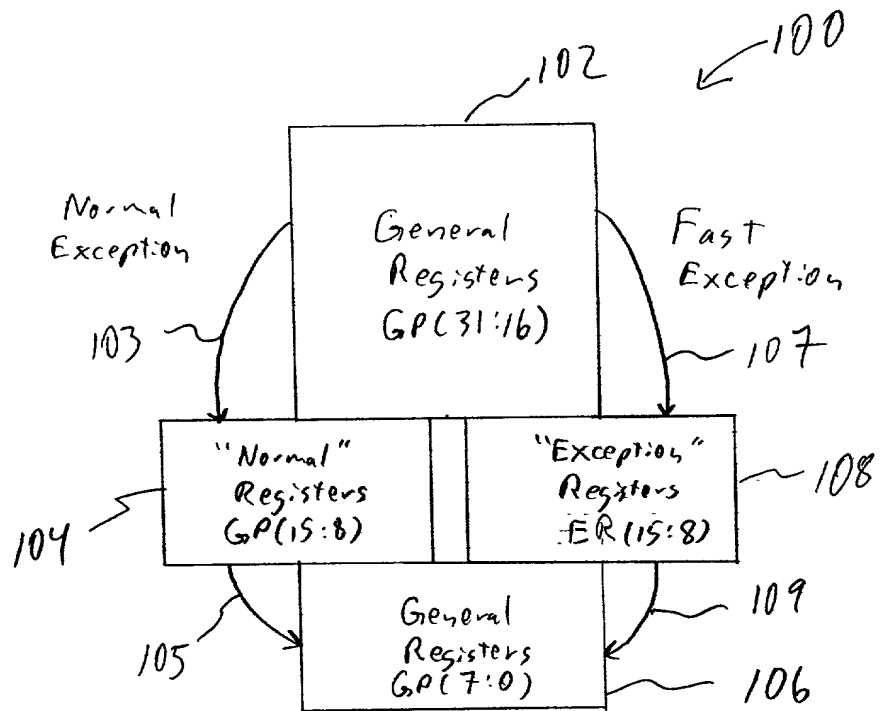 100
102
Normal
Exception
General
Registers
GP(31:16)
Fast
Exception
103
107
"Normal"
Registers
GP(15:8)
"Exception"
Registers
ER(15:8)
108
104
General
Registers
GP(7:0)
105
109
106